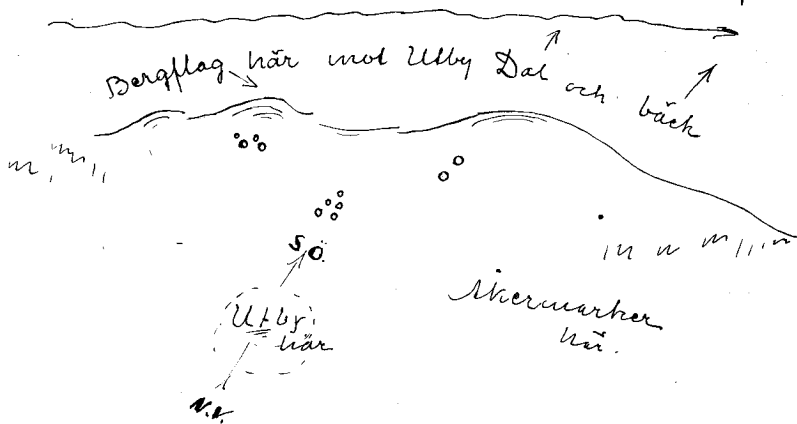 Bergflag här mot Utby Dal och bäck
S.Ö.
Utby
här
Åkermarker
här.
N.V.